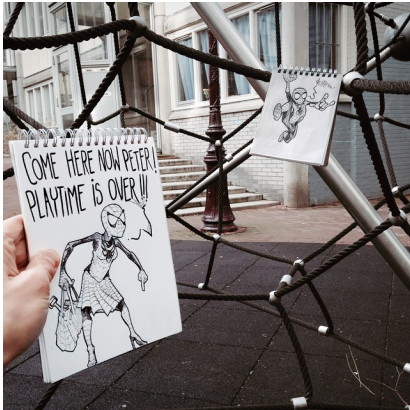 COME HERE NOW PETER!
PLAYTIME IS OVER!!!